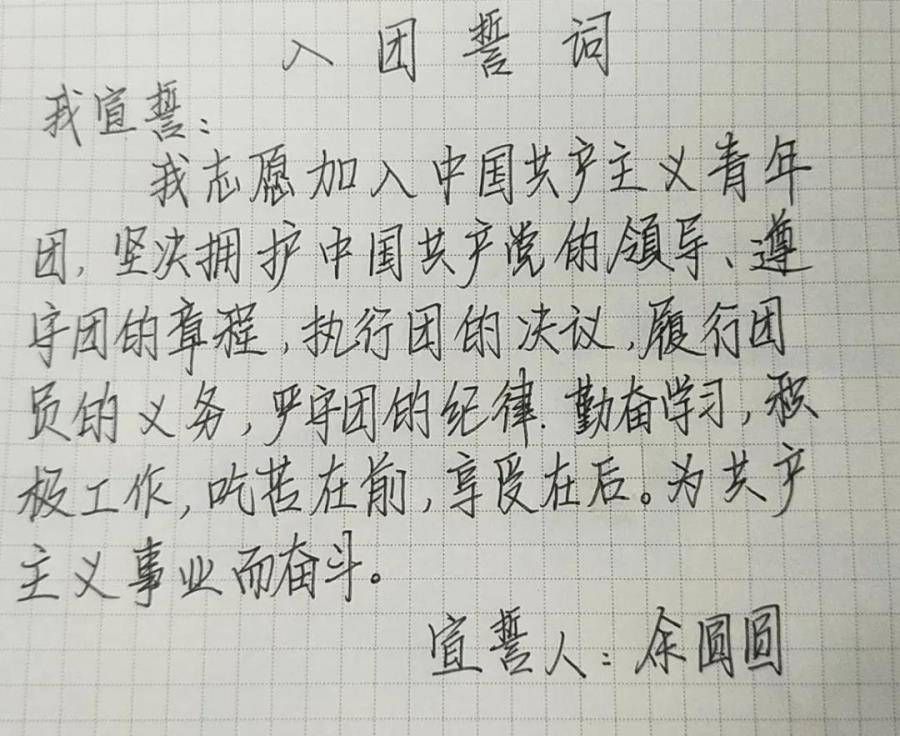 入团誓词
我宣誓:
我志愿加入中国共产主义青年
团,坚决拥护中国共产党的领导、遵
守团的章程,执行团的决议,履行团
员的义务,严守团的纪律.勤奋学习,积
极工作,吃苦在前,享受在后。为共产
主义事业而奋斗。
宣誓人:余圆圆